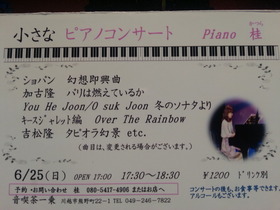 小さな ピアノコンサート Piano 桂
かつら
ショパン 幻想即興曲
加古隆 パリは燃えているか
You He Joon/O suk Joon 冬のソナタより
キースジャレット編 Over The Rainbow
吉松隆 タピオラ幻景 etc.
(曲目は、変更される場合がございます。)
6/25(日) OPEN 17:00 17:30~18:30 ¥1200 ドリンク別
予約・お問い合わせ 桂 080-5437-4906 またはお店へ
音喫茶一乗 川越市熊野町22-1 TEL 049-246-7822
コンサートの後も、お食事できます、
アルコールもございます。